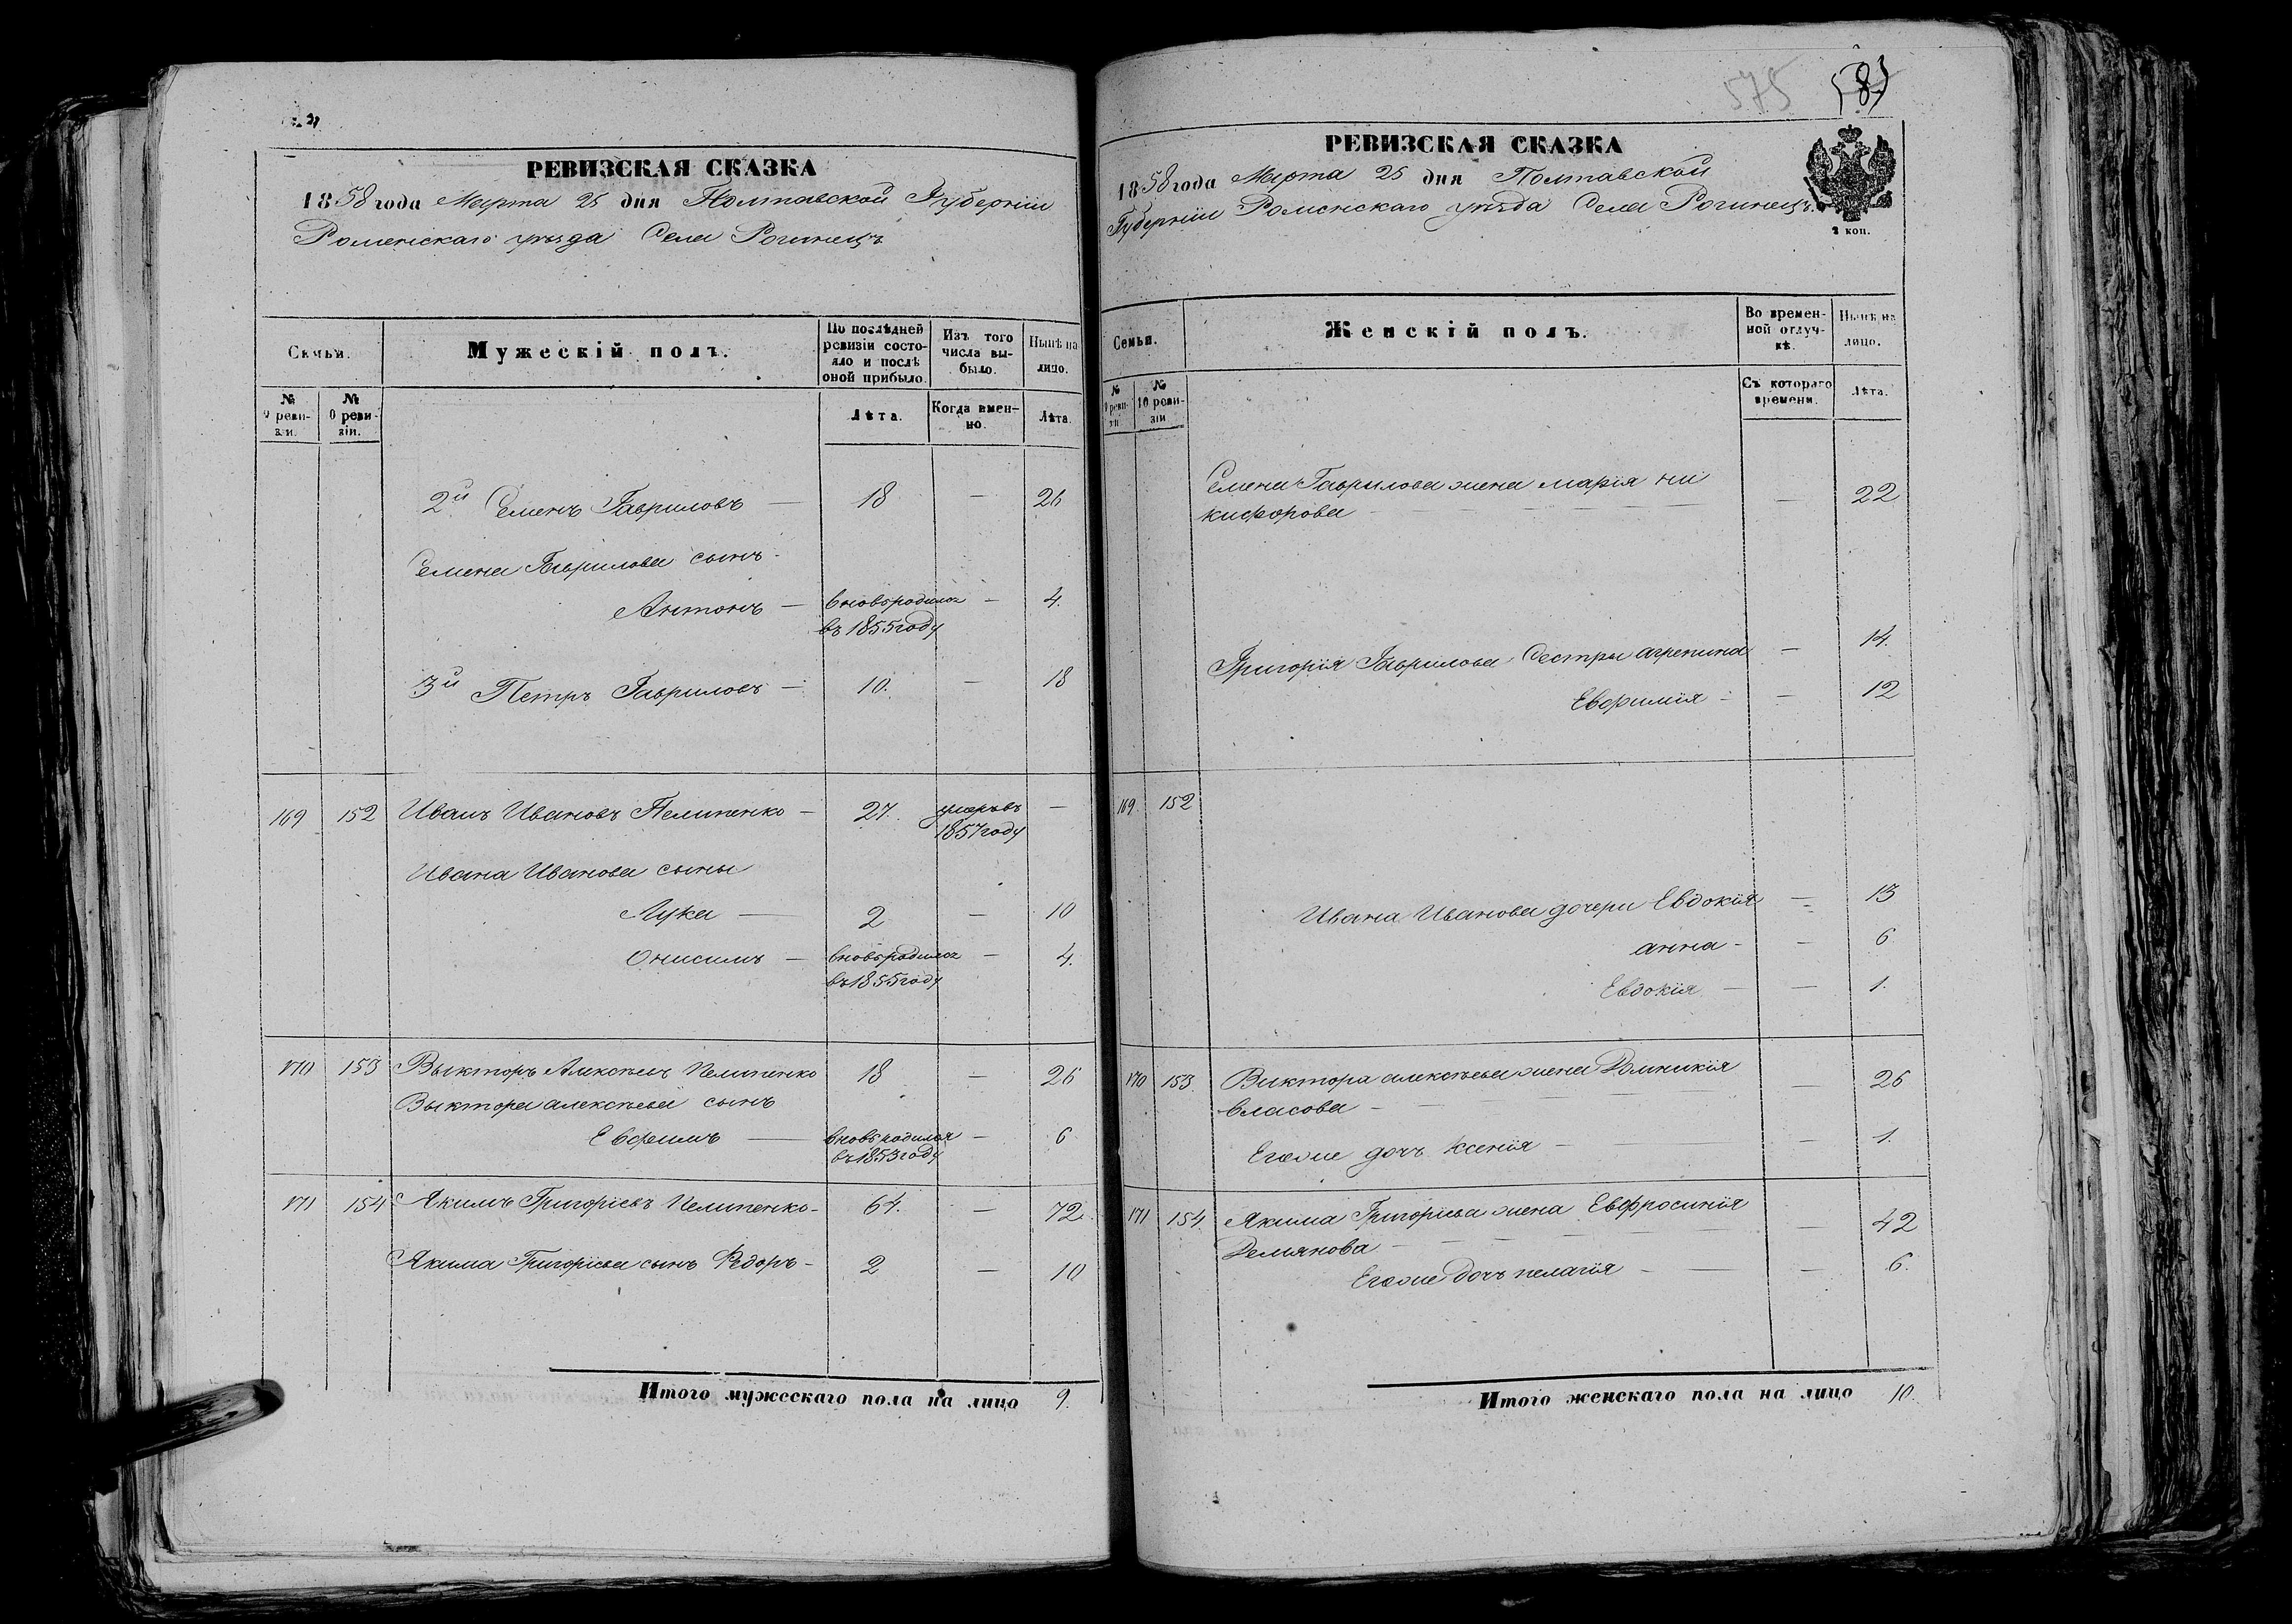 РЕВИЗСКАЯ СКАЗКА
1858 года Марта 25 дня Полтавской Губерніи
Роменскаго уѣзда Села Рогинецъ
Семьи.
Мужескій полъ.
По послѣдней ревизіи состояло и послѣ оной прибыло.
Изъ того числа выбыло.
Нынѣ на лицо.
№ 9 ревизіи.
№ 0 ревизіи.
Лѣта.
Когда имен-но.
Лѣта.
2й Семенъ Гавриловъ — 18 — 26
Семена Гаврилова сынъ -
Антонъ — вновьродился — 4.
въ 1855 году
3й Петръ Гавриловъ — 10. — 18
169 152 Иванъ Ивановъ Пелипенко — 27. умеръ въ —
1857 году
Ивана Иванова сыны
Лука — 2 — 10
Онисимъ — вновьродился — 4.
въ 1855 году
170 153 Выкторъ Алексѣевъ Пелипенко 18 — 26
Выктора алексѣева сынъ
Евфимъ — вновьродился — 6
въ 1853 году
171 154 Якимъ Григоріевъ Пелипенко - 64. — 72.
Якима Григоріева сынъ Ѳедоръ - 2 — 10
Итого мужескаго пола на лицо 9.
575
РЕВИЗСКАЯ СКАЗКА
1858 года Марта 25 дня Полтавской
Губерніи Роменскаго уѣзда Села Рогинецъ.
2 коп.
Семьи.
Женскій полъ.
Во времен-ной отлуч-кѣ.
Нынѣ на лицо.
№ 9 ревизіи
№ 10 ревизіи
Съ котораго времени.
Лѣта.
Семена Гаврилова жена марія ни — 22
кифорова
Григорія Гаврилова Сестры агрепина — 14.
Евфимія — — 12
169 152
Ивана Иванова дочери Евдокія — 13
анна - — 6
Евдокія — — 1.
170 153 Виктора алексѣева жена Домникія — 26
власова
Егоже дочь Ксенія — — 1.
171 154. Якима Григоріева жена Евфросинія — 42
Демянова
Егоже дочь пелагія — — 6.
Итого женскаго пола на лицо 10.